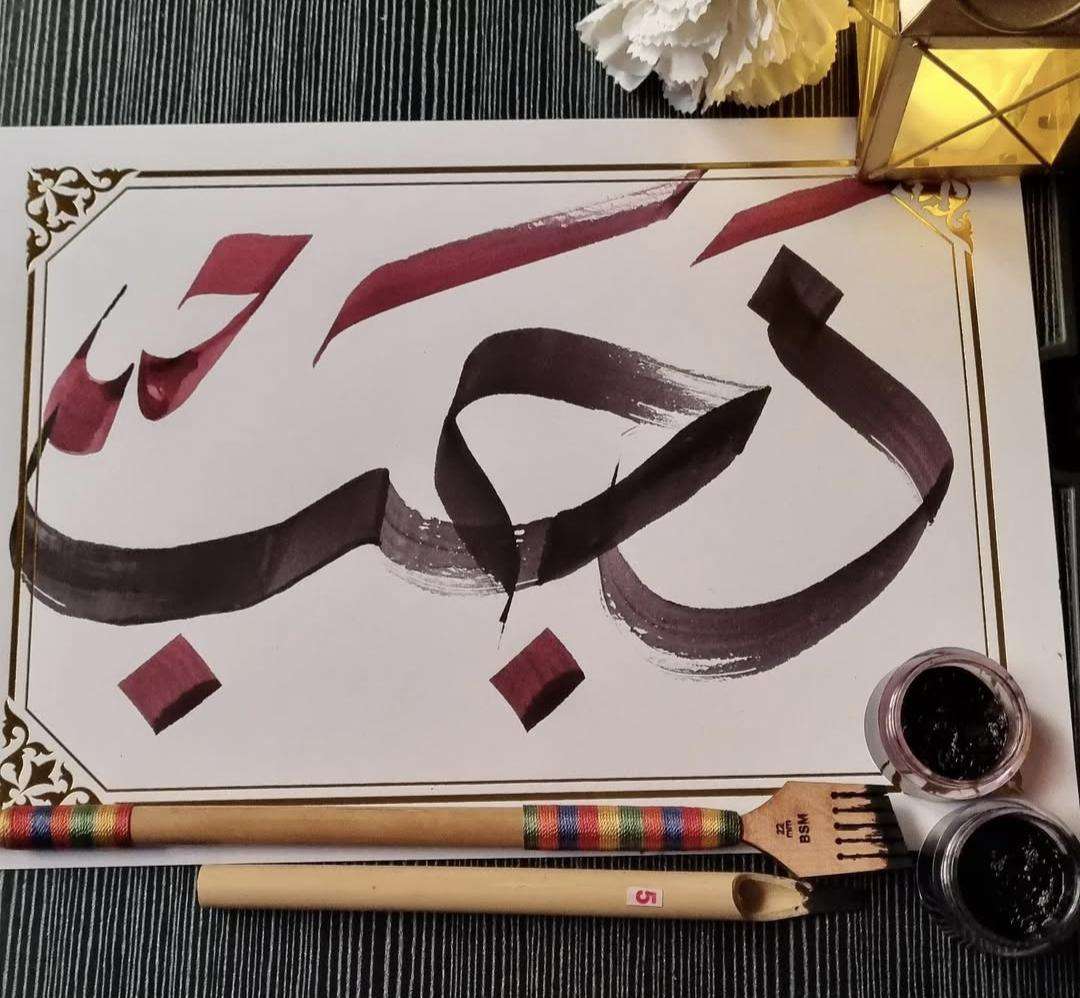 رَجَبٌ
22
mm
BSM
5